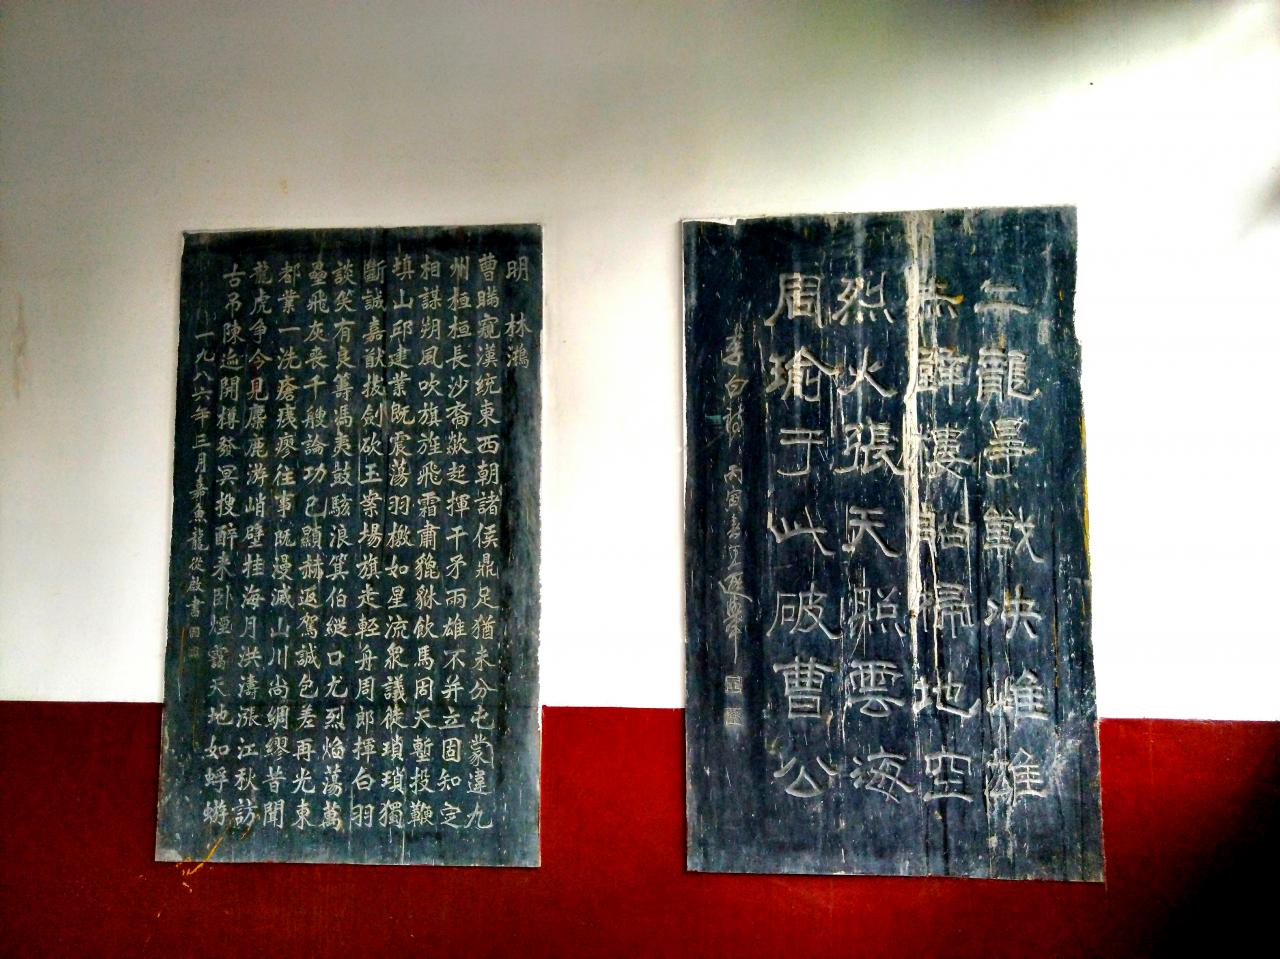 二龍爭戰決雌雄
赤壁樓船掃地空
烈火張天照雲海
周瑜于此破曹公
李白詩 丙寅春
明 林鴻
曹瞞窺漢統東西朝諸侯鼎足猶未分屯蒙違九
州桓桓長沙裔歘起揮干矛兩雄不并立固知定
相謀朔風吹旗旌飛霜肅貔貅飲馬固天塹投鞭
填山邱建業既震蕩羽檄如星流衆議徒瑣瑣獨
斷誠嘉猷拔劍砍玉案場旗走輕舟周郎揮白羽
談笑有良籌馮夷鼓駭浪箕伯縱口尤烈焰蕩萬
壘飛灰喪千艘論功已顯赫返駕誠包羞再光東
都業一洗瘡痍瘳往事既漫滅山川尚綢繆昔聞
龍虎爭今見麋鹿游峭壁挂海月洪濤漲江秋訪
古吊陳迹開樽發冥搜醉來卧煙靄天地如蜉蝣
一九八六年三月嘉魚龍從啟書